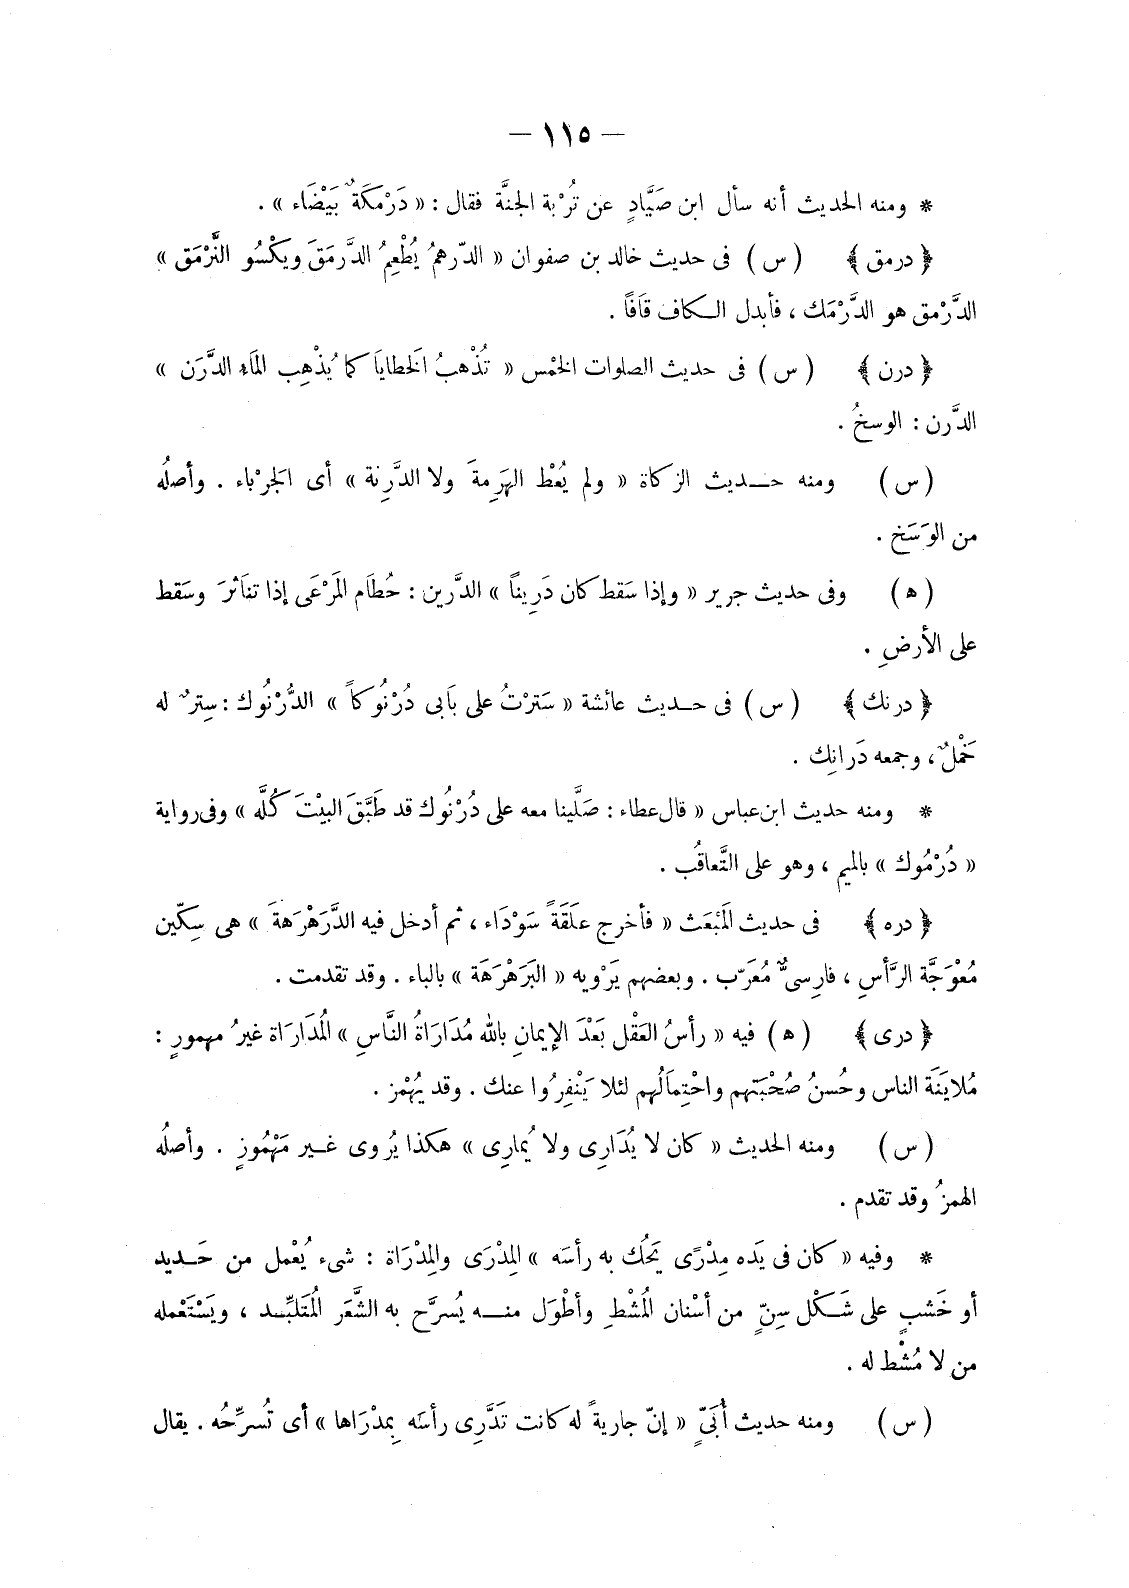 — ١١٥ —
* ومنه الحديث أنه سأل ابن صَيَّادٍ عن تُرْبة الجنَّة فقال : « دَرْمكَةٌ بَيْضَاء » .
﴿ درمق ﴾ ( س ) فى حديث خالد بن صفوان « الدّرهمُ يُطْعِمُ الدَّرمَقَ ويكْسُو النَّرْمَق »
الدَّرْمق هو الدَّرْمَك ، فأبدل الكاف قافًا .
﴿ درن ﴾ ( س ) فى حديث الصلوات الخمْس « تُذْهبُ الَخطاياَ كما يُذْهِب الماَء الدَّرَن »
الدَّرن : الوسخُ .
( س ) ومنه حديث الزكاة « ولم يُعْط الهَرِمةَ ولا الدَّرِنة » أى الَجرْباء . وأصلُه
من الوَسَخ .
( ه ) وفى حديث جرير « وإذا سَقط كان دَرِيناً » الدَّرين : حُطاَم المَرْعَى إذا تناَثرَ وسَقط
على الأرضِ .
﴿ درنك ﴾ ( س ) فى حديث عائشة « سَترْتُ على بَابى دُرْنُوكاً » الدُّرْنُوك : سِترٌ له
خَمْلٌ ، وجمعه دَرانِك .
* ومنه حديث ابن عباس « قال عطاء : صَلَّينا معه على دُرْنُوك قد طَبَّقَ البيْتَ كُلَّه » وفى رواية
« دُرْمُوك » بالميم ، وهو على التَّعاقُب .
﴿ دره ﴾ فى حديث المَبْعَث « فأخرج علَقَةً سَوْدَاء ، ثم أدخل فيه الدَّرَهْرَهةَ » هى سِكّين
مُعْوَجَّة الرَّأسِ ، فارِسىٌّ مُعَرّب . وبعضهم يَرْويه « البَرَهْرَهَة » بالباء . وقد تقدمت .
﴿ درى ﴾ ( ه ) فيه « رأسُ العَقْل بَعْدَ الإيمانِ بالله مُدَارَاةُ النَّاسِ » المُدَارَاة غيرُ مهمورٍ :
مُلايَنَة الناس وحُسنُ صُحْبَتهم واحْتِماَلُهم لئلا يَنْفِرُوا عنك . وقد يُهْمز .
( س ) ومنه الحديث « كان لا يُدَارِى ولا يُمارِى » هكذا يُروى غير مَهْمُوزٍ . وأصلُه
الهمزُ وقد تقدم .
* وفيه « كان فى يَده مِدْرًى يَحُك به رأسَه » المِدْرَى والمِدْرَاة : شىء يُعْمل من حَديد
أو خَشبٍ على شَكْل سِنّ من أسْنان المُشْطِ وأطْوَل منه يُسرَّح به الشَّعَر المُتَلبِّد ، ويَسْتَعْمله
من لا مُشْط له .
( س ) ومنه حديث أُبَىّ « إنّ جاريةً له كانت تَدَّرِى رأسَه بِمدْرَاها » أى تُسرِّحُه . يقال